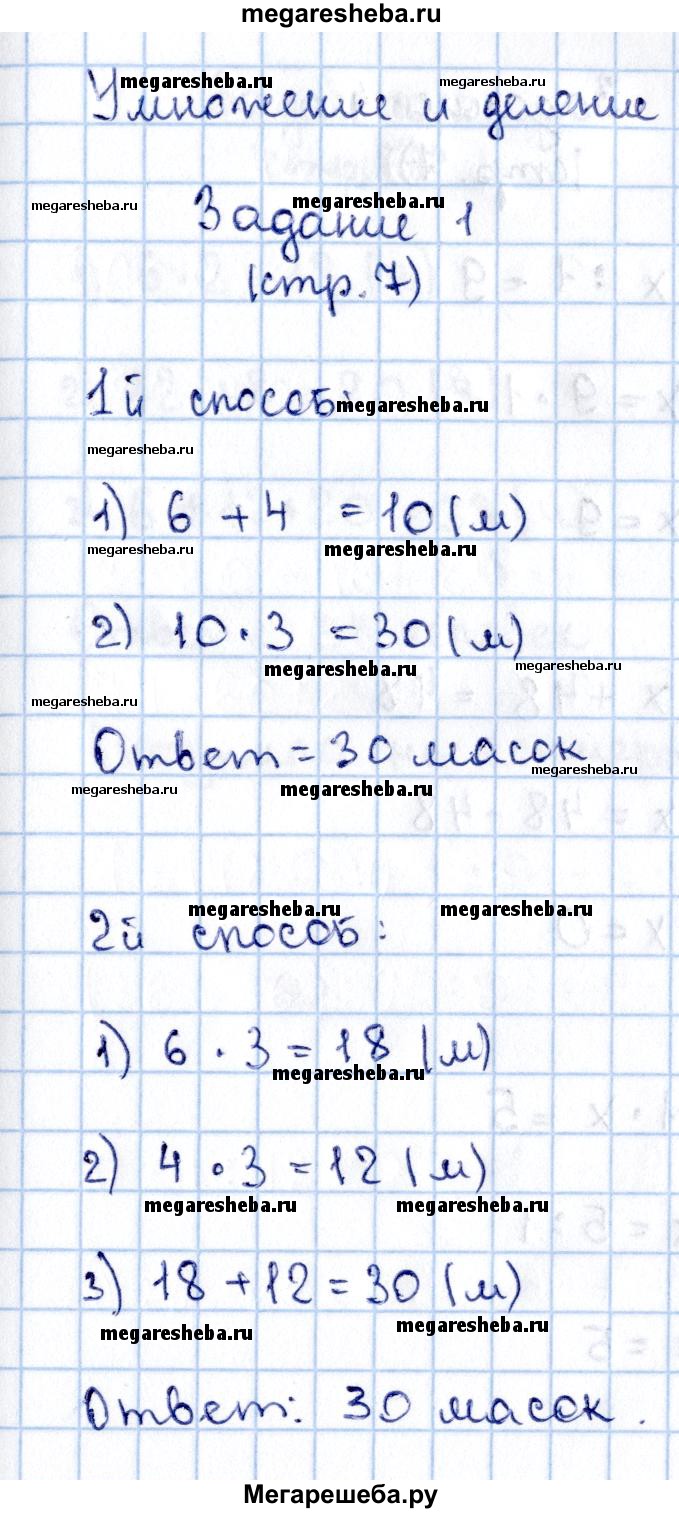 megaresheba.ru
megaresheba.ru megaresheba.ru
Умножение и деление
megaresheba.ru megaresheba.ru
Задание 1
(стр. 7)
1й способ: megaresheba.ru
megaresheba.ru
1) 6 + 4 = 10 (м)
megaresheba.ru megaresheba.ru
2) 10 · 3 = 30 (м)
megaresheba.ru megaresheba.ru
megaresheba.ru
Ответ = 30 масок
megaresheba.ru
megaresheba.ru megaresheba.ru
megaresheba.ru megaresheba.ru
2й способ:
1) 6 · 3 = 18 (м)
megaresheba.ru
2) 4 · 3 = 12 (м)
megaresheba.ru megaresheba.ru
3) 18 + 12 = 30 (м)
megaresheba.ru megaresheba.ru
Ответ: 30 масок.
Мегарешеба.ру